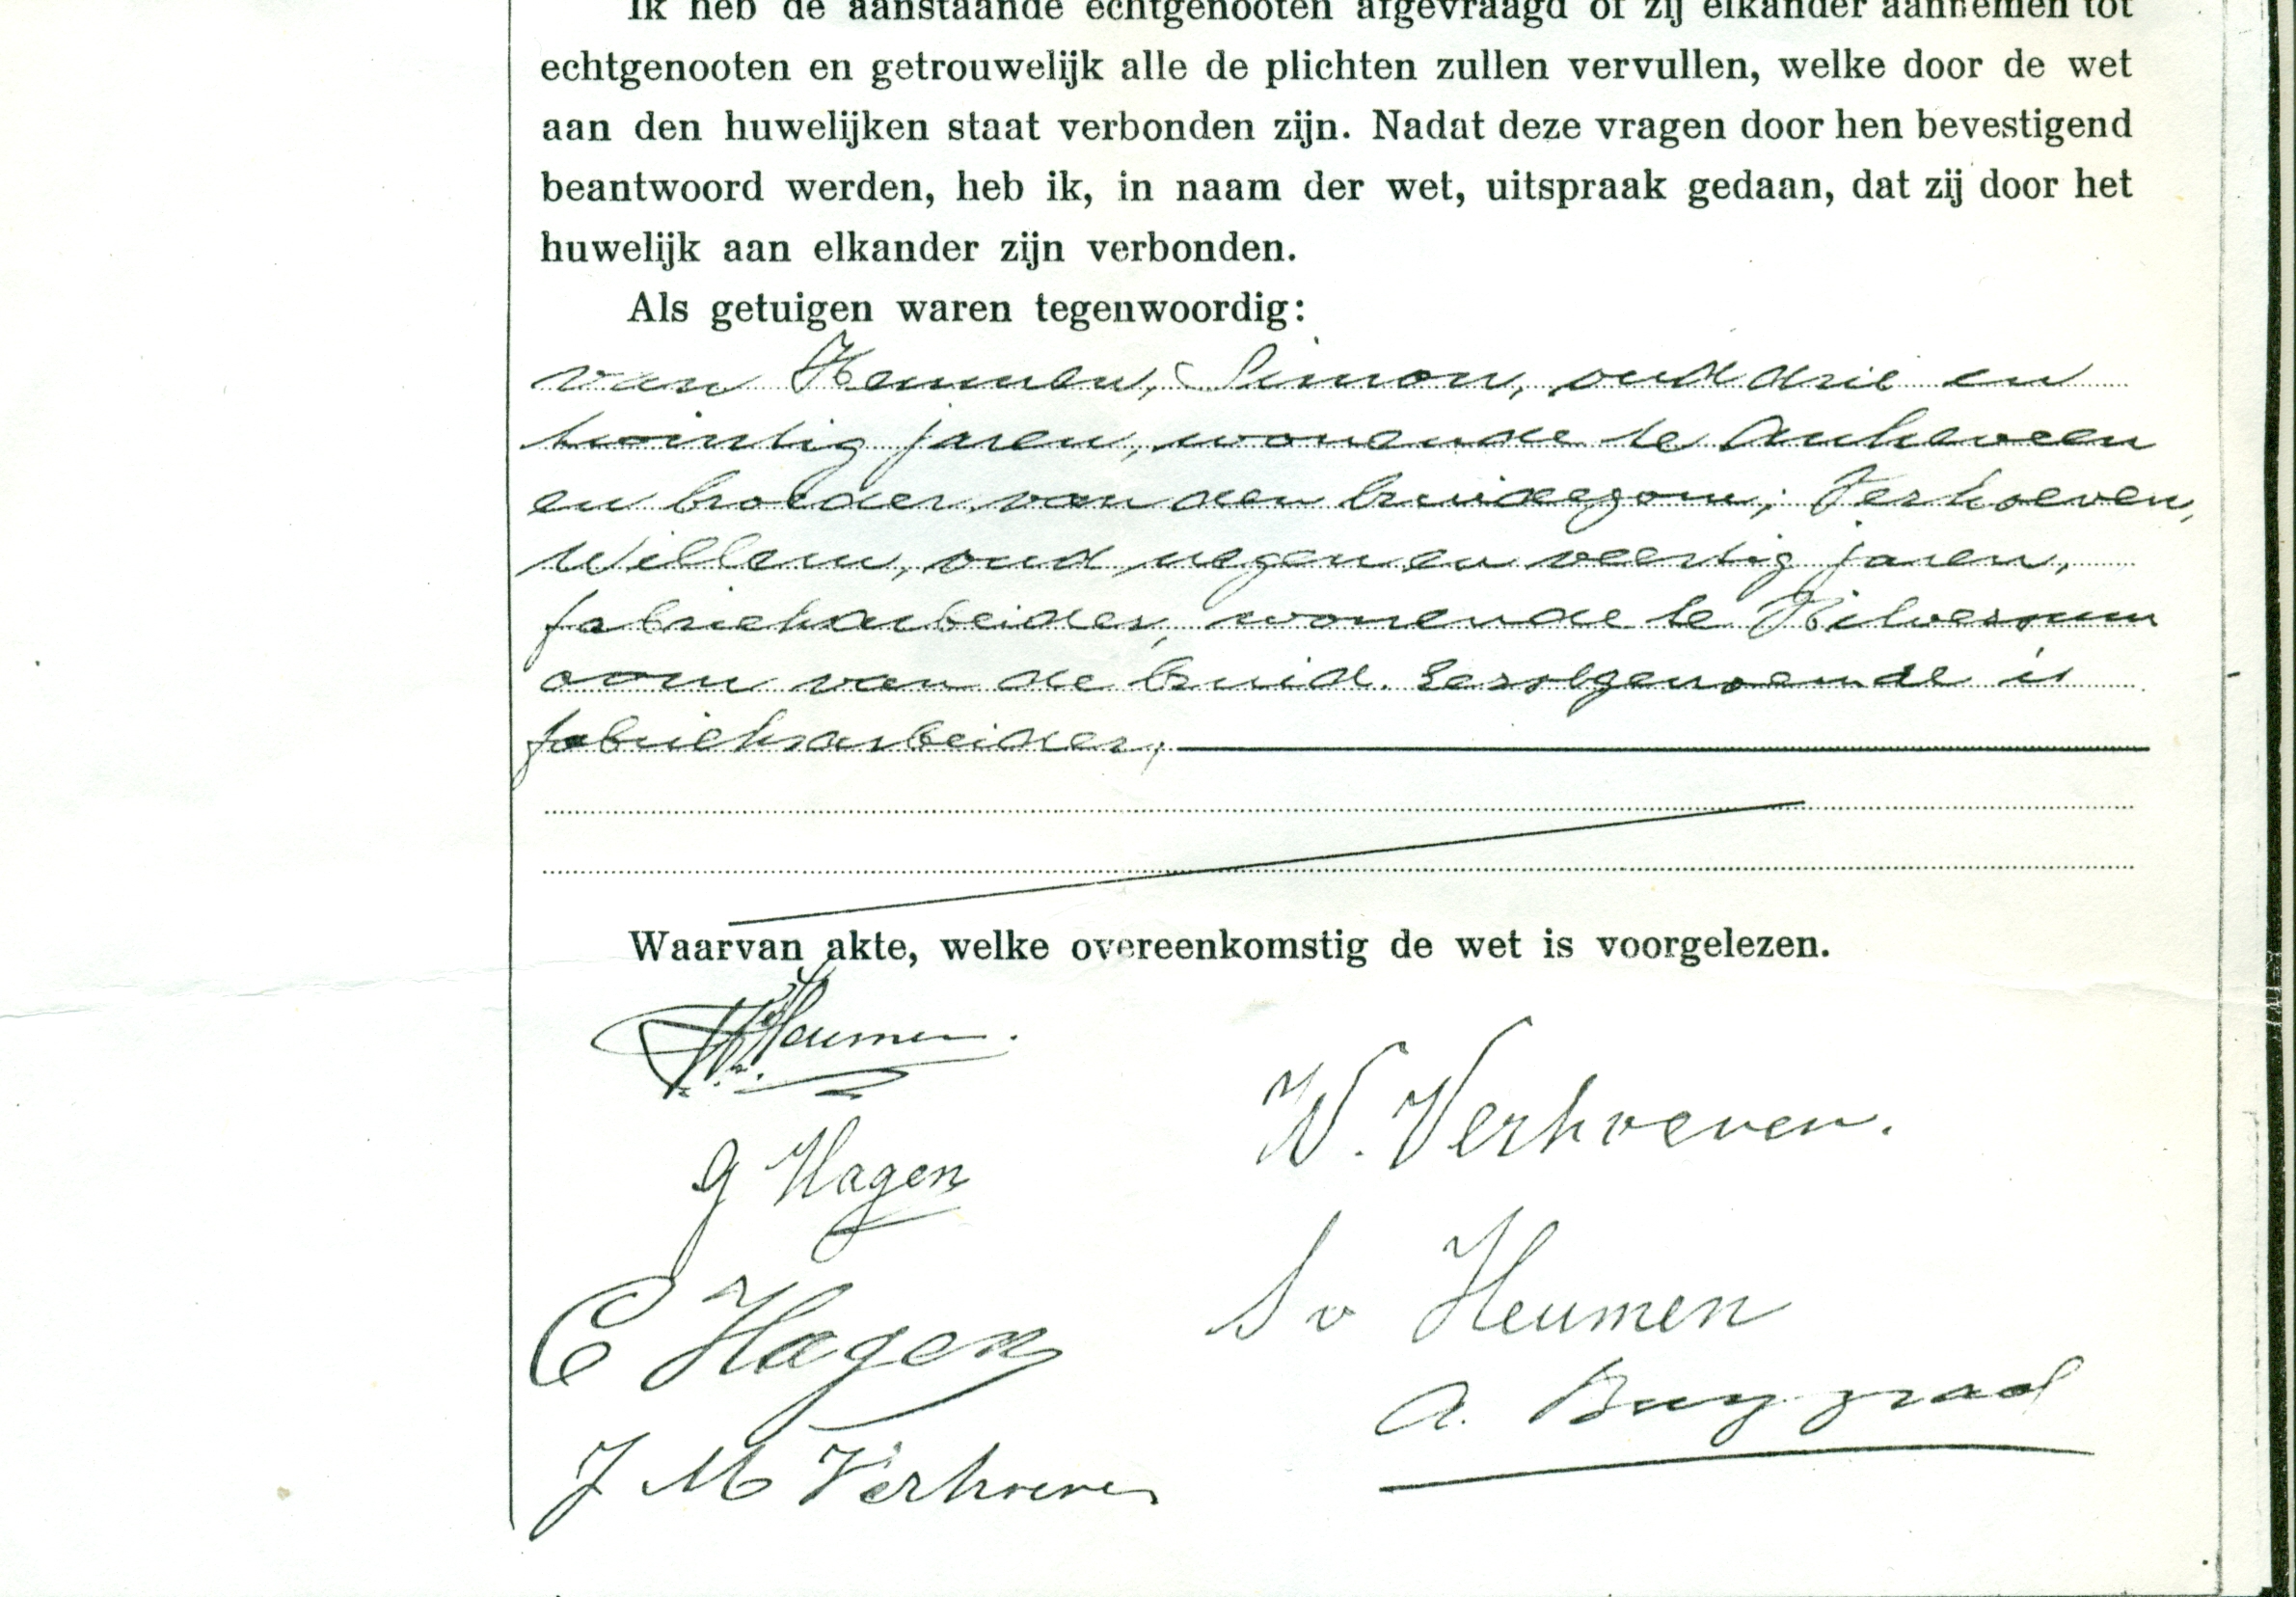 Ik heb de aanstaande echtgenooten afgevraagd of zij elkander aannemen tot
echtgenooten en getrouwelijk alle de plichten zullen vervullen, welke door de wet
aan den huwelijken staat verbonden zijn. Nadat deze vragen door hen bevestigend
beantwoord werden, heb ik, in naam der wet, uitspraak gedaan, dat zij door het
huwelijk aan elkander zijn verbonden.
Als getuigen waren tegenwoordig:
van Heumen, Simon, oud drie en
twintig jaren, wonende te Ankeveen
en broeder van den bruidegom; Verhoeven,
Willem, oud negen en veertig jaren,
fabrieksarbeider, wonende te Hilversum
oom van de bruid. Eerstgenoemde is
fabrieksarbeider;
Waarvan akte, welke overeenkomstig de wet is voorgelezen.
Heumen.
W. Verhoeven.
G Hagen
S v Heumen
C Hagen
A.
J M Verhoeven